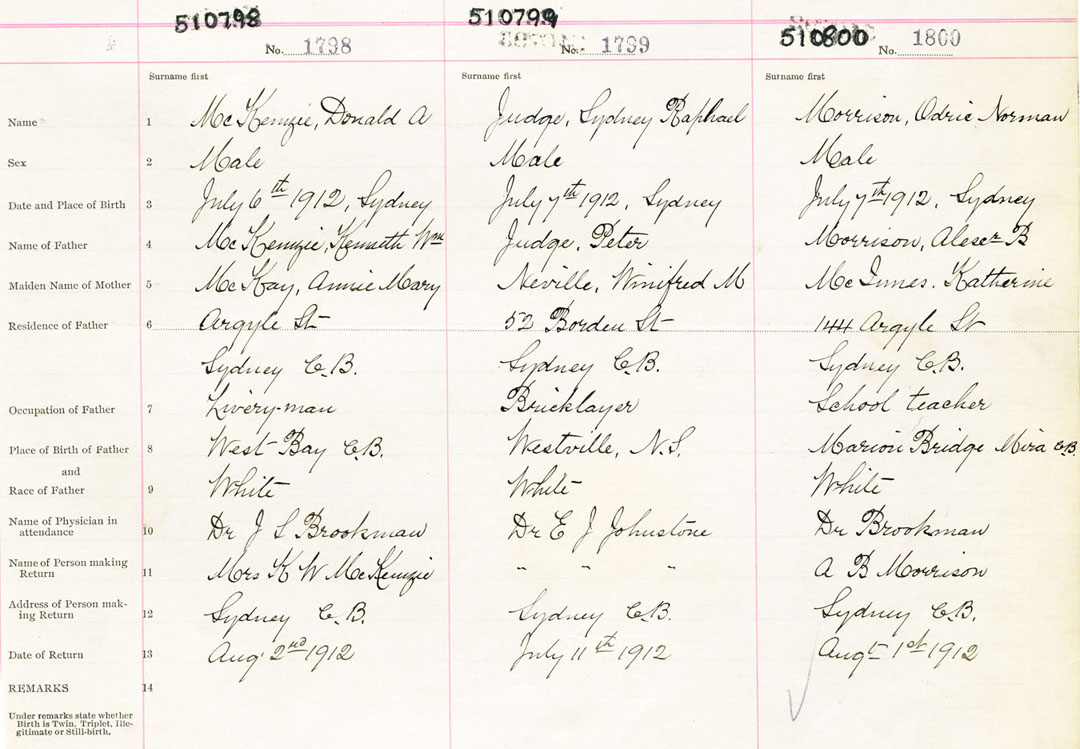 510798 510799 510800
No. 1798 No. 1799 No. 1800
Surname first Surname first Surname first
Name 1 McKenzie, Donald A Judge, Sydney Raphael Morrison, Odric Norman
Sex 2 Male Male Male
Date and Place of Birth 3 July 6th 1912, Sydney July 7th 1912, Sydney July 7th 1912, Sydney
Name of Father 4 McKenzie, Kenneth Wm Judge, Peter Morrison, Alexr B
Maiden Name of Mother 5 McKay, Annie Mary Neville, Winifred M McInnes. Katherine
Residence of Father 6 Argyle St 52 Borden St 144 Argyle St
Sydney C.B. Sydney C.B. Sydney C.B.
Occupation of Father 7 Livery-man Bricklayer School teacher
Place of Birth of Father 8 West Bay C.B. Westville, N.S. Marion Bridge Mira C.B.
and
Race of Father 9 White White White
Name of Physician in
attendance 10 Dr J S Brookman Dr E J Johnstone Dr Brookman
Name of Person making
Return 11 Mrs K W McKenzie " " " A B Morrison
Address of Person mak-
ing Return 12 Sydney C.B. Sydney C.B. Sydney C.B.
Date of Return 13 Aug. 2nd 1912 July 11th 1912 Augt 1st 1912
REMARKS 14
Under remarks state whether
Birth is Twin, Triplet, Ille-
gitimate or Still-birth.